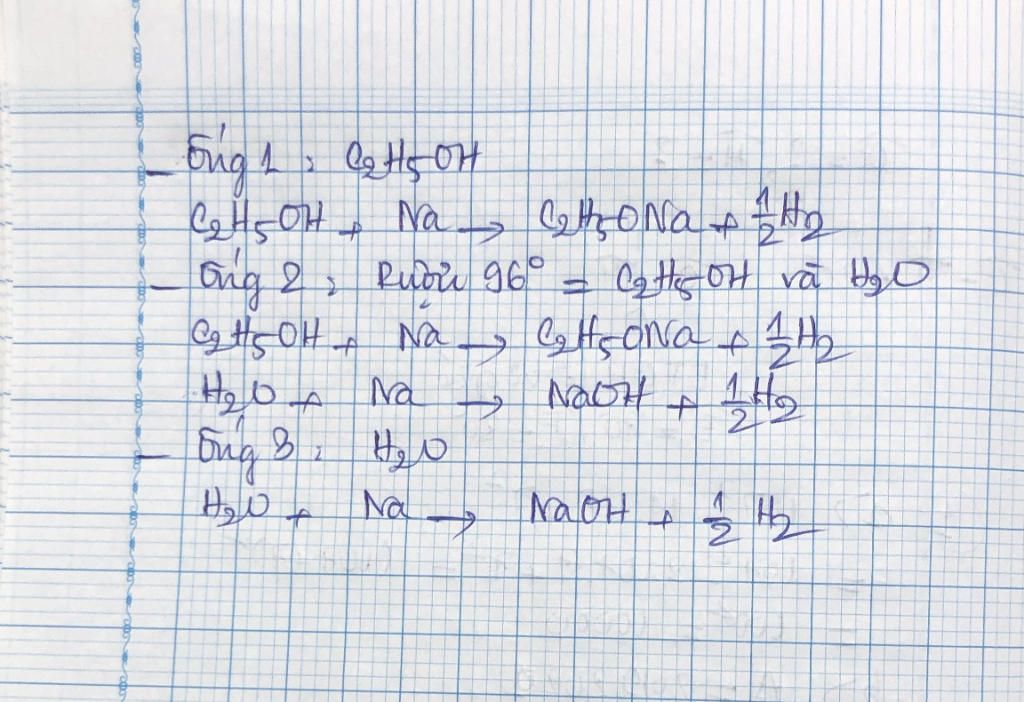 - Ống 1 : C₂H₅OH
C₂H₅OH + Na → C₂H₅ONa + ½H₂
- Ống 2 : Rượu 96° = C₂H₅OH và H₂O
C₂H₅OH + Na → C₂H₅ONa + ½H₂
H₂O + Na → NaOH + ½H₂
- Ống 3 : H₂O
H₂O + Na → NaOH + ½ H₂